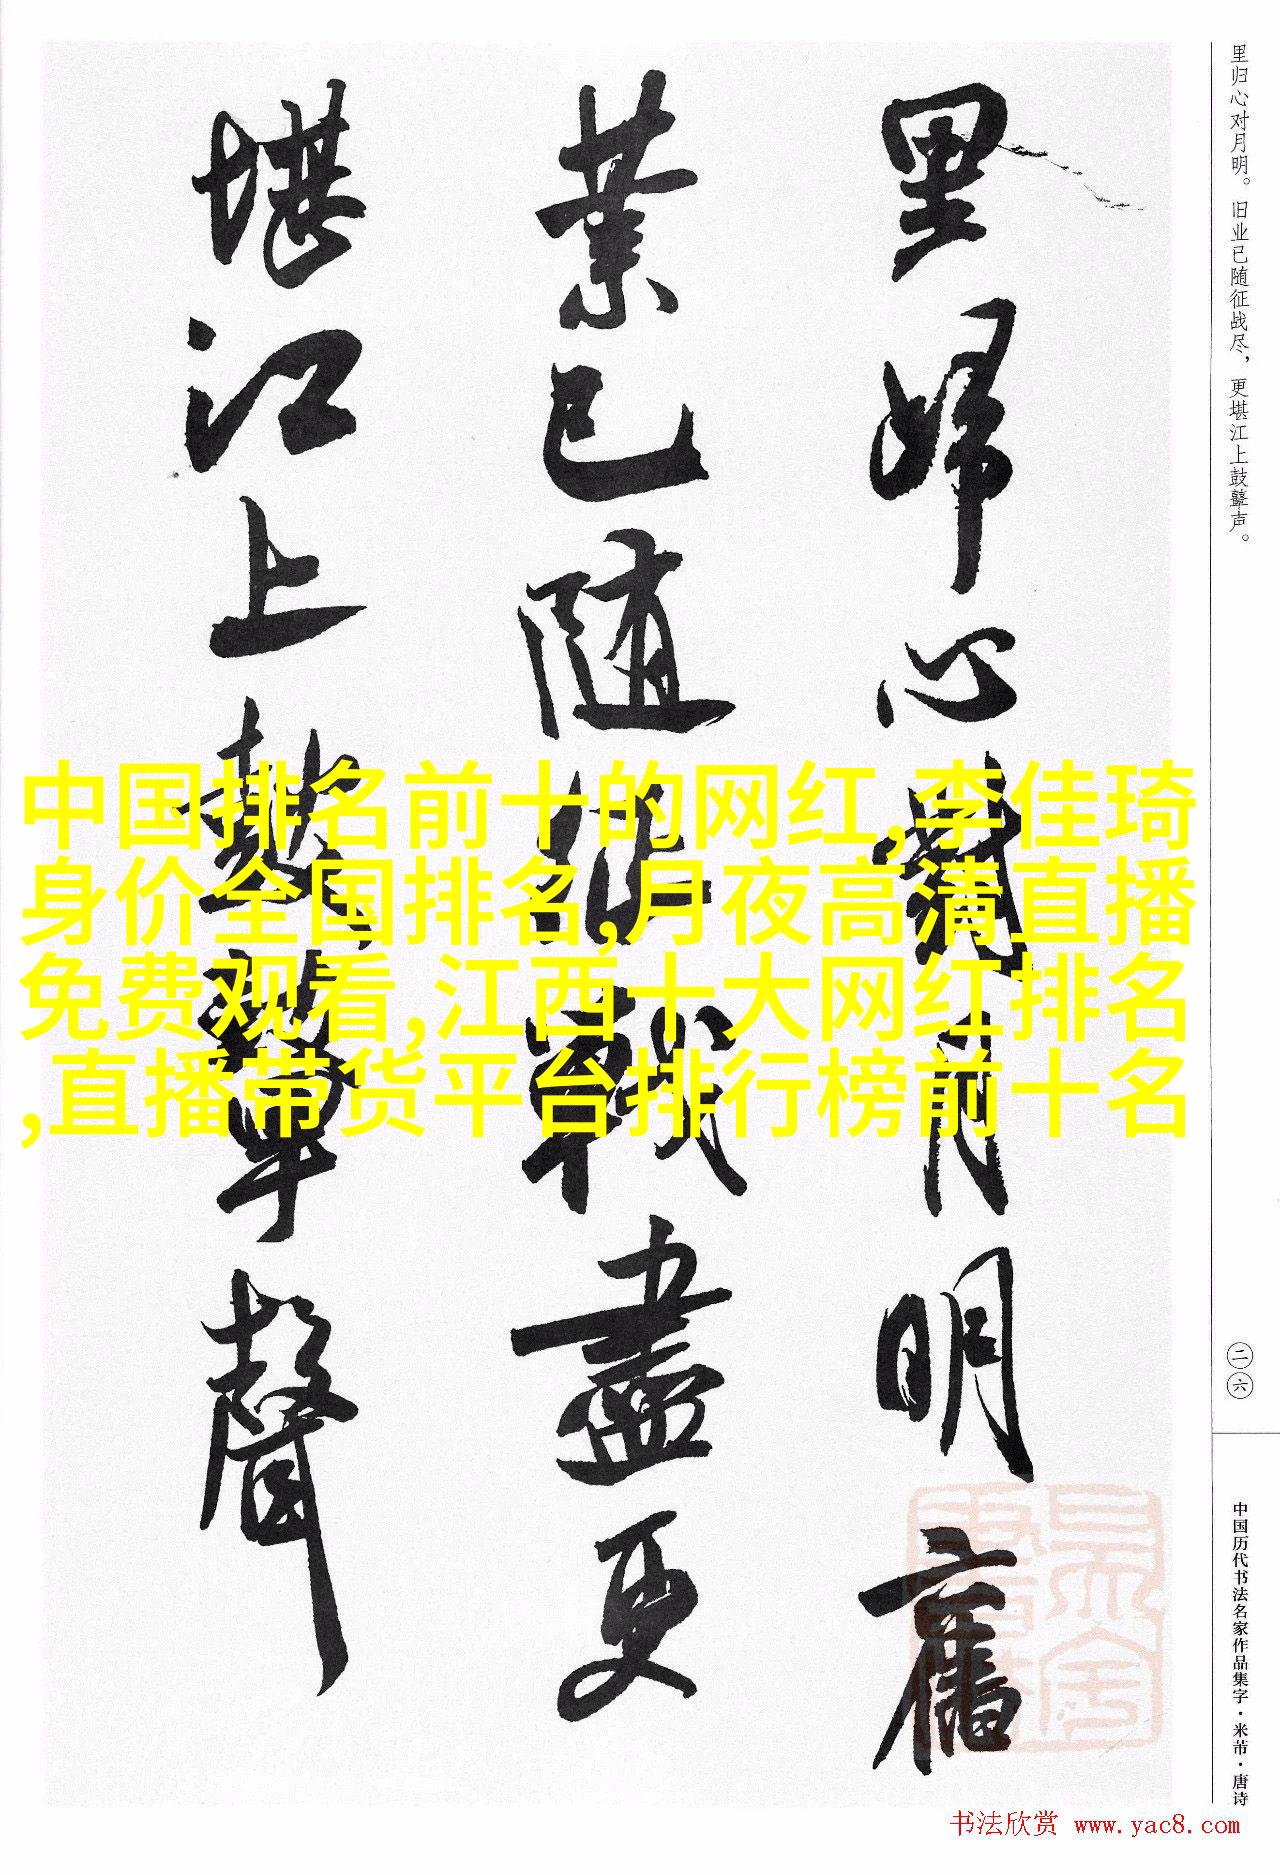 里归心对月明。旧业已随征战尽，更堪江上鼓鼙声。
里歸心對月明舊
業已隨征戰盡更
堪江上鼓鼙聲
中国排名前十的网红,李佳琦
身价全国排名,月夜高清直播
免费观看,江西十大网红排名
,直播带货平台排行榜前十名
二六
中国历代书法名家作品集字·米芾·唐诗
书法欣赏 www.yac8.com